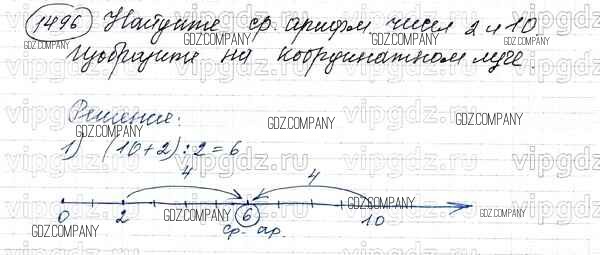 1496 Найдите ср. арифм чисел 2 и 10
GDZ.COMPANY GDZ.COMPANY GDZ.COMPANY
Изобразите на координатном луче.
vipgdz.ru vipgdz.ru vipgdz.ru
Решение:
GDZ.COMPANY GDZ.COMPANY GDZ.COMPANY
1) (10+2):2=6
vipgdz.ru vipgdz.ru vipgdz.ru
4 4
0 2 6 10
GDZ.COMPANY GDZ.COMPANY GDZ.COMPANY GDZ.COMPANY
ср. ар.
vipgdz.ru vipgdz.ru vipgdz.ru